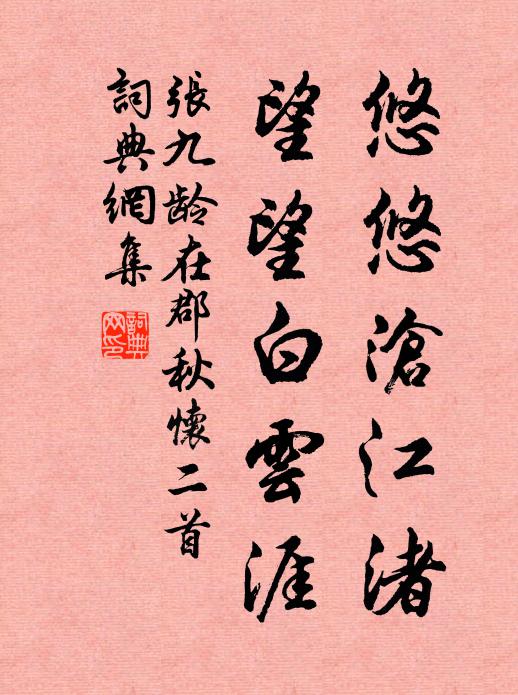 悠悠滄江渚
望望白雲涯
張九龄在郡秋懷二首
詞典網集
詞典